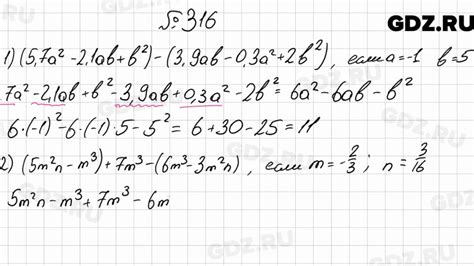 № 316
GDZ.RU
1) (5,7a² - 2,1ab + b²) - (3,9ab - 0,3a² + 2b²), если a = -1 b = 5
,7a² - 2,1ab + b² - 3,9ab + 0,3a² - 2b² = 6a² - 6ab - b²
6·(-1)² - 6·(-1)·5 - 5² = 6 + 30 - 25 = 11
2) (5m²n - m³) + 7m³ - (6m³ - 3m²n), если m = -2/3; n = 3/16
5m²n - m³ + 7m³ - 6m